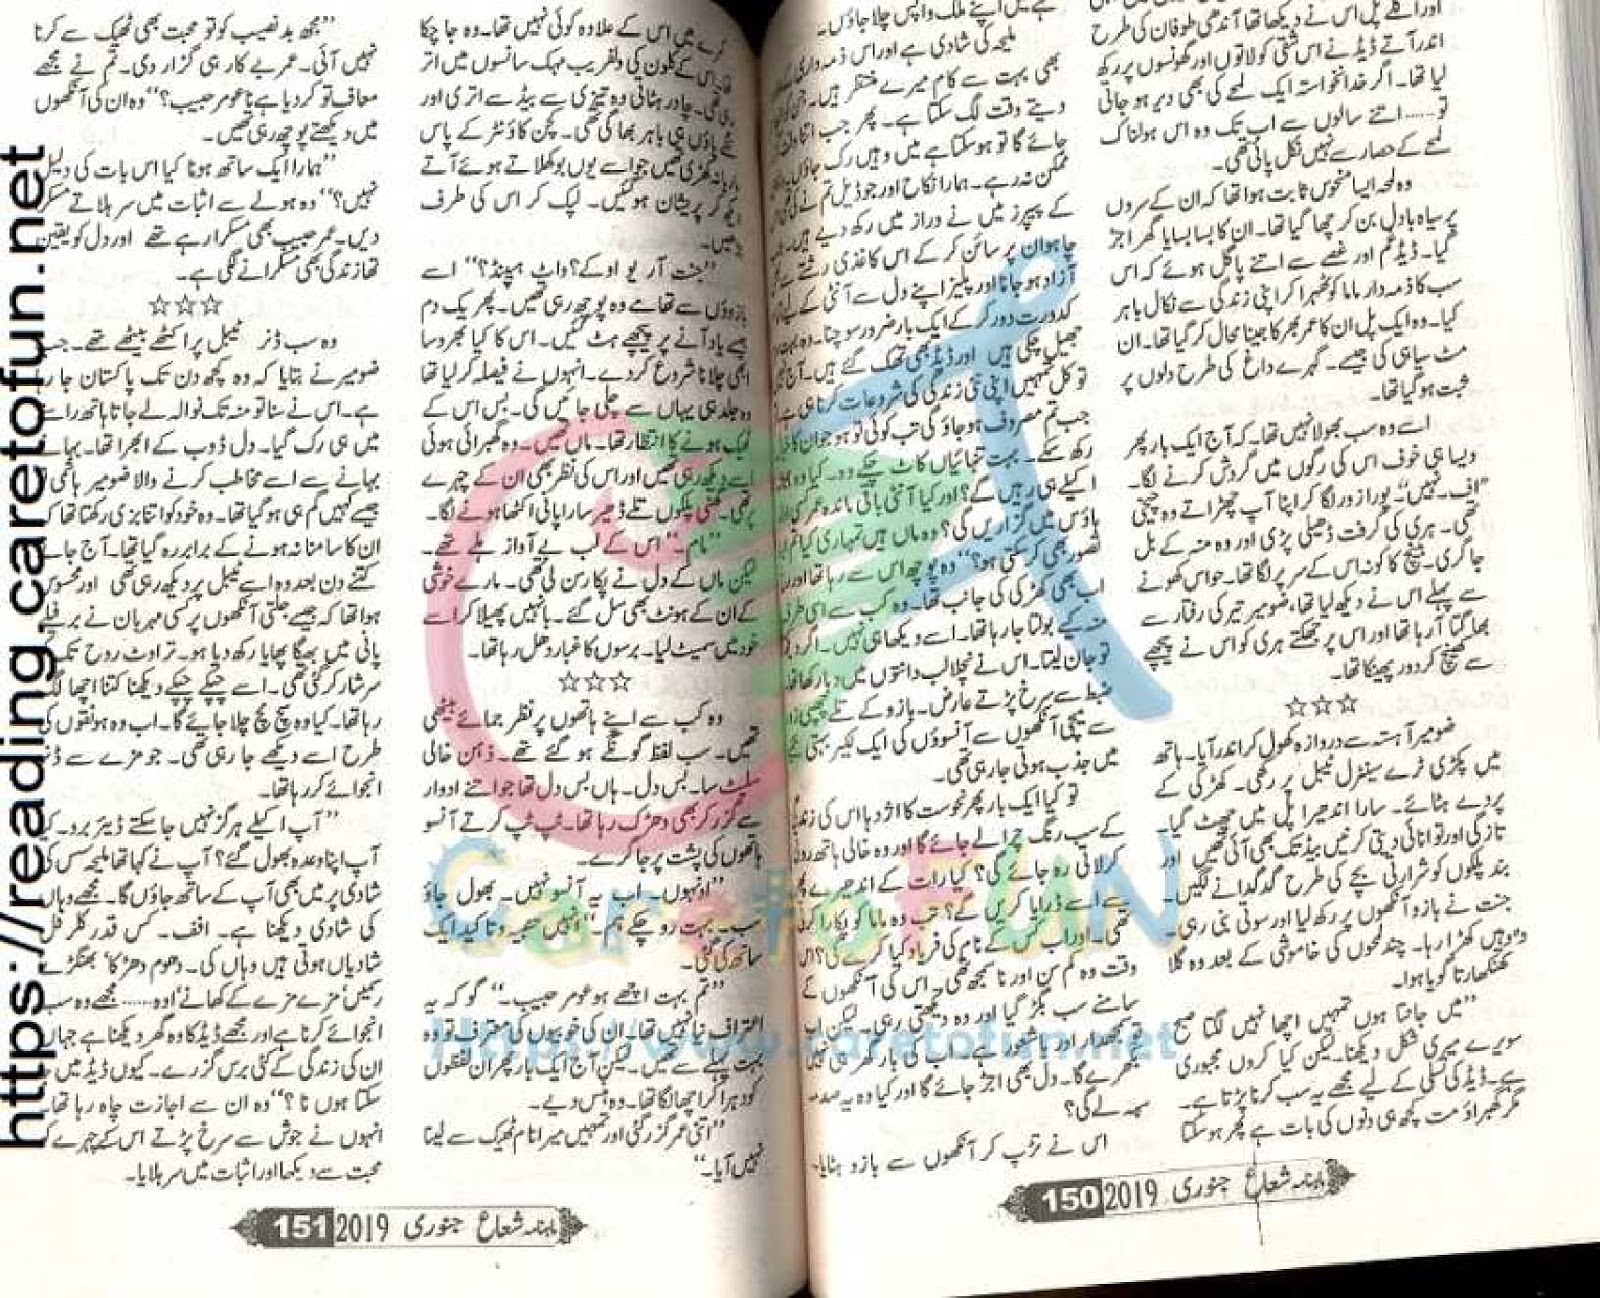 اور اگلے پل اس نے دیکھا تھا آندھی طوفان کی طرح
اندر آتے ڈیڈ نے اس شقی کو لاتوں اور گھونسوں پر رکھ
لیا تھا۔ اگر خدانخواستہ ایک لمحے کی بھی دیر ہو جاتی
تو...... اتنے سالوں سے اب تک وہ اس ہولناک
لمحے کے حصار سے نہیں نکل پائی تھی۔
وہ لمحہ ایسا منحوس ثابت ہوا تھا کہ ان کے سروں
پر سیاہ بادل بن کر چھا گیا تھا۔ ان کا بسا بسایا گھر اجڑ
گیا۔ ڈیڈ غم اور غصے سے اتنے پاگل ہوئے کہ اس
سب کا ذمہ دار ماما کو ٹھہرا کر اپنی زندگی سے نکال باہر
کیا۔ وہ ایک پل ان کا عمر بھر کا جینا محال کر گیا تھا۔ ان
مٹ سیاہی کی جیسے۔ گہرے داغ کی طرح دلوں پر
ثبت ہو گیا تھا۔
اسے وہ سب بھولا نہیں تھا۔ کہ آج ایک بار پھر
ویسا ہی خوف اس کی رگوں میں گردش کرنے لگا۔
"اف۔ نہیں"۔ پورا زور لگا کر اپنا آپ چھڑاتے وہ چیخی
تھی۔ ہری کی گرفت ڈھیلی پڑی اور وہ منہ کے بل
جا گری۔ بینچ کا کونہ اس کے سر پر لگا تھا۔ حواس کھونے
سے پہلے اس نے دیکھ لیا تھا، ضومیر تیر کی رفتار سے
بھاگتا آ رہا تھا اور اس پر جھکتے ہری کو اس نے پیچھے
سے کھینچ کر دور پھینکا تھا۔
☆☆☆
ضومیر آہستہ سے دروازہ کھول کر اندر آیا۔ ہاتھ
میں پکڑی ٹرے سینٹرل ٹیبل پر رکھی۔ کھڑکی کے
پردے ہٹائے۔ سارا اندھیرا پل میں چھٹ گیا۔
تازگی اور توانائی دیتی کرنیں بیڈ تک بھی آئی تھیں اور
بند پلکوں کو شرارتی بچے کی طرح گدگدانے لگیں۔
جنت نے بازو آنکھوں پر رکھ لیا اور سوتی بنی رہی۔
وہ وہیں کھڑا رہا۔ چند لمحوں کی خاموشی کے بعد وہ گلا
کھنکھارتا گویا ہوا۔
"میں جانتا ہوں تمہیں اچھا نہیں لگتا صبح
سویرے میری شکل دیکھنا۔ لیکن کیا کروں مجبوری
ہے۔ ڈیڈ کی تسلی کے لیے مجھے یہ سب کرنا پڑتا ہے۔
مگر گھبراؤ مت کچھ ہی دنوں کی بات ہے پھر ہو سکتا
ہے میں اپنے ملک واپس چلا جاؤں۔
ملیحہ کی شادی ہے اور اس ذمہ داری کے
بھی بہت سے کام میرے منتظر ہیں۔
دیتے وقت لگ سکتا ہے۔ پھر جب اتنا وقت
جائے گا تو ہو سکتا ہے میں وہیں رک جاؤں
ممکن نہ رہے۔ ہمارا نکاح اور جو ڈیل تم نے کی
کے پیپرز میں نے دراز میں رکھ دیے ہیں۔
چاہو ان پر سائن کر کے اس کاغذی رشتے سے
آزاد ہو جانا اور پلیز اپنے دل سے آنٹی کے لیے
کدورت دور کر کے ایک بار ضرور سوچنا۔ وہ بہت
جھیل چکی ہیں اور ڈیڈ بھی تھک گئے ہیں۔ آج نہیں
تو کل تمہیں اپنی نئی زندگی کی شروعات کرنا ہی ہے
جب تم مصروف ہو جاؤ گی تب کوئی تو ہو جو ان کا خیال
رکھ سکے۔ بہت تنہائیاں کاٹ چکے وہ۔ کیا وہ
اکیلے ہی رہیں گے؟ اور کیا آنٹی باقی ماندہ عمر کسی
ہاؤس میں گزاریں گی؟ وہ ماں ہیں تمہاری کیا تم یہ
تصور بھی کر سکتی ہو؟" وہ پوچھ اس سے رہا تھا اور
اب بھی کھڑکی کی جانب تھا۔ وہ کب سے اسی طرف
منہ کیے بولتا جا رہا تھا۔ اسے دیکھا ہی نہیں۔ اگر دیکھتا
تو جان لیتا۔ اس نے نچلا لب دانتوں میں دبا رکھا تھا
ضبط سے سرخ پڑتے عارض۔ بازو کے تلے چھپی
سے میچی آنکھوں سے آنسوؤں کی ایک لکیر بہتی
میں جذب ہوتی جا رہی تھی۔
تو کیا ایک بار پھر نحوست کا اژدہا اس کی زندگی
کے سب رنگ چرا لے جائے گا اور وہ خالی ہاتھ روتی
کرلاتی رہ جائے گی؟ کیا رات کے اندھیرے پھر
سے اسے ڈرایا کریں گے؟ تب وہ ماما کو پکارا کرتی
تھی۔ اور اب کس کے نام کی فریاد کیا کرے گی؟ اس
وقت وہ کم سن اور نا سمجھ تھی۔ اس کی آنکھوں کے
سامنے سب بگڑ گیا اور وہ دیکھتی رہی۔ لیکن اب
تو سمجھدار اور باشعور ہے۔ اب کی بار گھر ہی نہیں
بکھرے گا۔ دل بھی اجڑ جائے گا اور کیا وہ یہ صدمہ
سہہ لے گی؟
اس نے تڑپ کر آنکھوں سے بازو ہٹایا۔
ماہنامہ شعاع جنوری 2019 150
کمرے میں اس کے علاوہ کوئی نہیں تھا۔ وہ جا چکا
تھا۔ اس کے کلون کی دلفریب مہک سانسوں میں اتر
رہی تھی۔ چادر ہٹاتی وہ تیزی سے بیڈ سے اتری اور
ننگے پاؤں ہی باہر بھاگی تھی۔ کچن کاؤنٹر کے پاس
ماریانہ کھڑی تھیں جو اسے یوں بوکھلاتے ہوئے آتے
دیکھ کر پریشان ہو گئیں۔ لپک کر اس کی طرف
بڑھیں۔
"جنت آر یو اوکے؟ واٹ ہیپنڈ؟" اسے
بازوؤں سے تھامے وہ پوچھ رہی تھیں۔ پھر یک دم
جیسے یاد آنے پر پیچھے ہٹ گئیں۔ اس کا کیا بھروسا
ابھی چلانا شروع کر دے۔ انہوں نے فیصلہ کر لیا تھا
وہ جلد ہی یہاں سے چلی جائیں گی۔ بس اس کے
ٹھیک ہونے کا انتظار تھا۔ ماں تھیں۔ وہ گھبرائی ہوئی
اسے دیکھ رہی تھیں اور اس کی نظر بھی ان کے چہرے
پر تھی۔ گھنی پلکوں تلے ڈھیر سارا پانی اکٹھا ہونے لگا۔
"مام۔" اس کے لب بے آواز ہلے تھے۔
لیکن ماں کے دل نے پکار سن لی تھی۔ مارے خوشی
کے ان کے ہونٹ بھی سل گئے۔ بانہیں پھیلا کر اسے
خود میں سمیٹ لیا۔ برسوں کا غبار دھل رہا تھا۔
☆☆☆
وہ کب سے اپنے ہاتھوں پر نظر جمائے بیٹھی
تھیں۔ سب لفظ گونگے ہو گئے تھے۔ ذہن خالی
سلیٹ سا۔ بس دل۔ ہاں بس دل تھا جو اتنے ادوار
سے گزر کر بھی دھڑک رہا تھا۔ ٹپ ٹپ کرتے آنسو
ہاتھوں کی پشت پر جا گرے۔
"اونہوں۔ اب یہ آنسو نہیں۔ بھول جاؤ
سب۔ بہت رو چکے ہم۔" انہیں تنبیہ و تاکید ایک
ساتھ کی گئی۔
"تم بہت اچھے ہو عومر حبیب۔" گو کہ یہ
اعتراف نیا نہیں تھا۔ ان کی خوبیوں کی معترف تو وہ
بہت پہلے سے تھیں۔ لیکن آج ایک بار پھر ان لفظوں
کو دہرا کر اچھا لگا تھا۔ وہ ہنس دیے۔
"اتنی عمر گزر گئی اور تمہیں میرا نام ٹھیک سے لینا
نہیں آیا۔"
"مجھ بد نصیب کو تو محبت بھی ٹھیک سے کرنا
نہیں آئی۔ عمر بے کار ہی گزار دی۔ تم نے مجھے
معاف تو کر دیا ہے نا عومر حبیب؟" وہ ان کی آنکھوں
میں دیکھتے پوچھ رہی تھیں۔
"ہمارا ایک ساتھ ہونا کیا اس بات کی دلیل
نہیں؟" وہ ہولے سے اثبات میں سر ہلاتے مسکرا
دیں۔ عمر حبیب بھی مسکرا رہے تھے اور دل کو یقین
تھا زندگی بھی مسکرانے لگی ہے۔
☆☆☆
وہ سب ڈنر ٹیبل پر اکٹھے بیٹھے تھے۔ جب
ضومیر نے بتایا کہ وہ کچھ دن تک پاکستان جا رہا
ہے۔ اس نے سنا تو منہ تک نوالہ لے جاتا ہاتھ راستے
میں ہی رک گیا۔ دل ڈوب کے ابھرا تھا۔ بہانے
بہانے سے اسے مخاطب کرنے والا ضومیر ہاشمی
جیسے کہیں گم ہی ہو گیا تھا۔ وہ خود کو اتنا بزی رکھتا تھا کہ
ان کا سامنا نہ ہونے کے برابر رہ گیا تھا۔ آج جانے
کتنے دن بعد وہ اسے ٹیبل پر دیکھ رہی تھی اور محسوس
ہوا تھا کہ جیسے جلتی آنکھوں پر کسی مہربان نے برفیلے
پانی میں بھیگا پھایا رکھ دیا ہو۔ تراوٹ روح تک کو
سرشار کر گئی تھی۔ اسے چپکے چپکے دیکھنا کتنا اچھا لگ
رہا تھا۔ کیا وہ سچ مچ چلا جائے گا۔ اب وہ ہونقوں کی
طرح اسے دیکھے جا رہی تھی۔ جو مزے سے ڈنر
انجوائے کر رہا تھا۔
"آپ اکیلے ہرگز نہیں جا سکتے ڈیئر برو۔ کیا
آپ اپنا وعدہ بھول گئے؟ آپ نے کہا تھا ملیحہ سس کی
شادی پر میں بھی آپ کے ساتھ جاؤں گا۔ مجھے وہاں
کی شادی دیکھنا ہے۔ افف۔ کس قدر کلر فل
شادیاں ہوتی ہیں وہاں کی۔ دھوم دھڑکا، بھنگڑے
رسمیں، مزے مزے کے کھانے، اوہ...... مجھے وہ سب
انجوائے کرنا ہے اور مجھے ڈیڈ کا وہ گھر دیکھنا ہے جہاں
ان کی زندگی کے کئی برس گزرے۔ کیوں ڈیڈ میں جا
سکتا ہوں نا؟" وہ ان سے اجازت چاہ رہا تھا۔
انہوں نے جوش سے سرخ پڑتے اس کے چہرے کو
محبت سے دیکھا اور اثبات میں سر ہلایا۔
ماہنامہ شعاع جنوری 2019 151
https://reading.caretofun.net
CaretoFUN
Http://www.caretofun.net